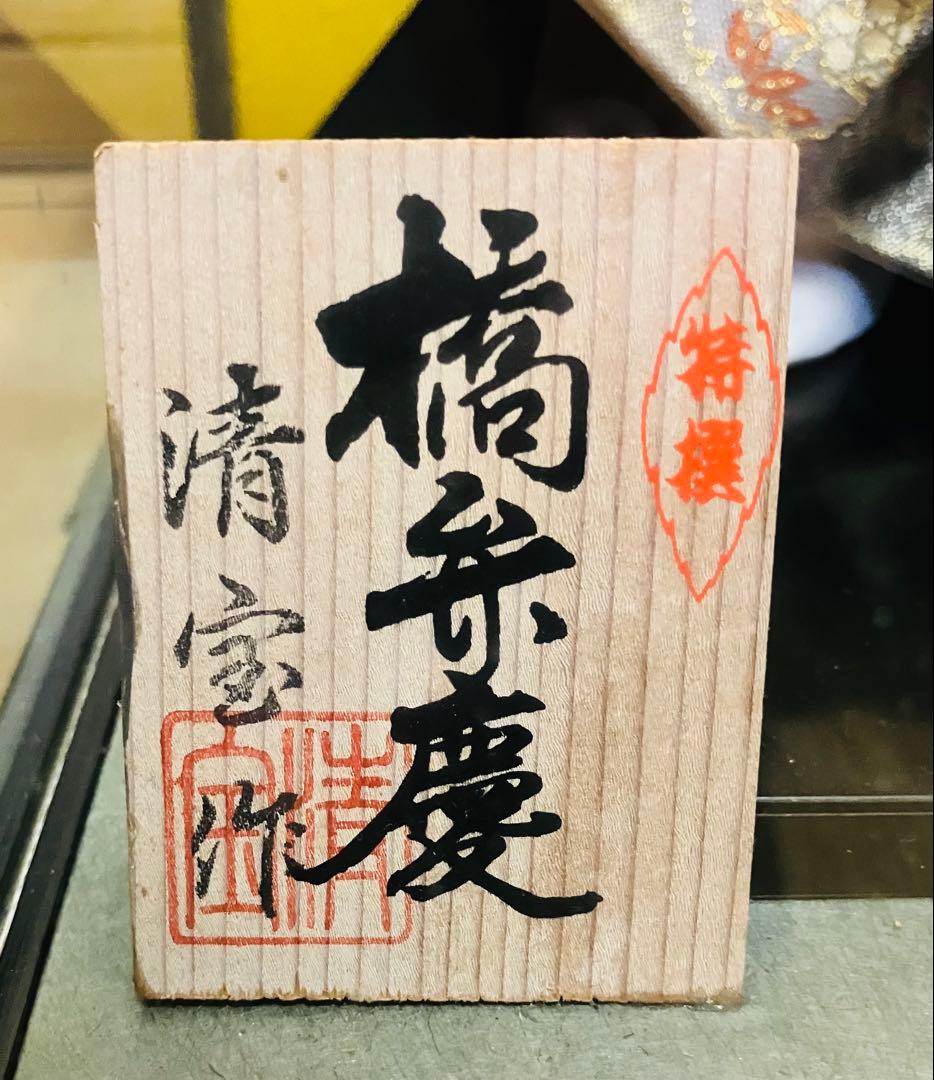 特撰
橋弁慶
清宝作
清宝